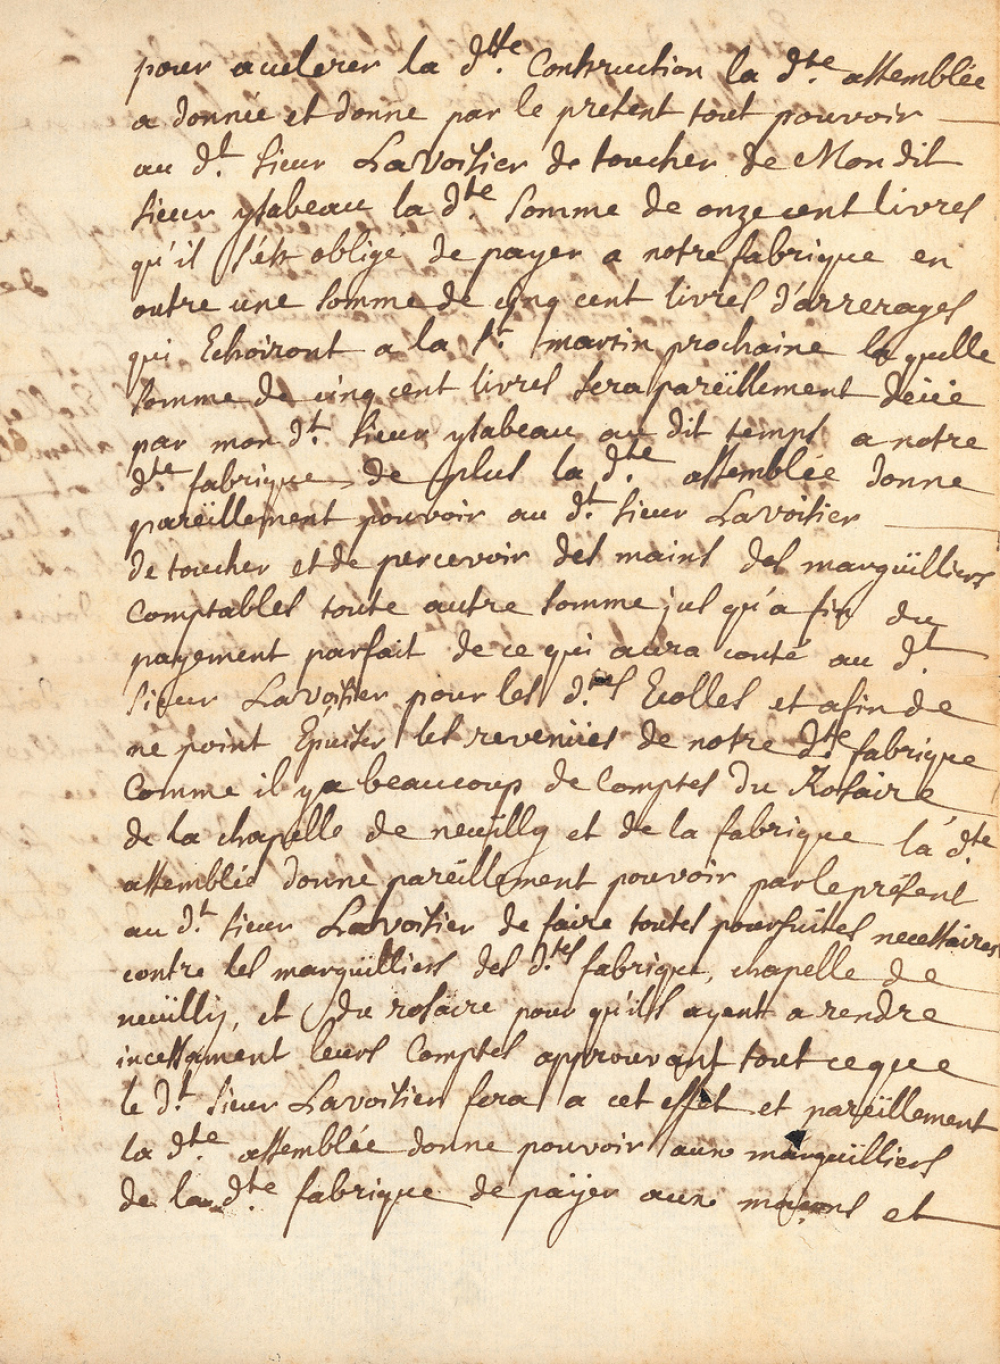 pour accelerer la dtte. Construction la dte. assemblée
a donnée et donne par le present tout pouvoir
au dt. sieur Lavoisier de toucher de Mondit
sieur ysabeau la dte. somme de onze cent livres
qu'il s'est obligé de payer a notre fabrique en
outre une somme de cinq cent livres d'arrerages
qui Echoiront a la St. martin prochaine laquelle
somme de cinq cent livres sera pareïllement deüe
par mon dt. sieur ysabeau au dit temps a notre
dte. fabrique, de plus la dte. assemblée donne
pareïllement pouvoir au dt. sieur Lavoisier
de toucher et de percevoir des mains des marguïlliers
Comptables toute autre somme jus qu'a fin du
payement parfait de ce qui aura couté au dt.
sieur Lavoisier pour les d.tes Ecolles et afin de
ne point Epuiser les revenües de notre dtte. fabrique
Comme il y a beaucoup de Comptes du Rosaire
de la chapelle de neuïlly et de la fabrique la dte.
assemblée donne pareïllement pouvoir par le présent
au dt. sieur Lavoisier de faire toutes poursuites necessaires
contre les marguïlliers des d.tes fabrique, chapelle de
neuïlly, et du rosaire pour qu'ils ayent a rendre
incessament leurs Comptes approuvant tout ce que
le dt. sieur Lavoisier fera a cet effet et pareïllement
la dte. assemblée donne pouvoir aux marguïlliers
de la dte. fabrique de païjer aux maçons et